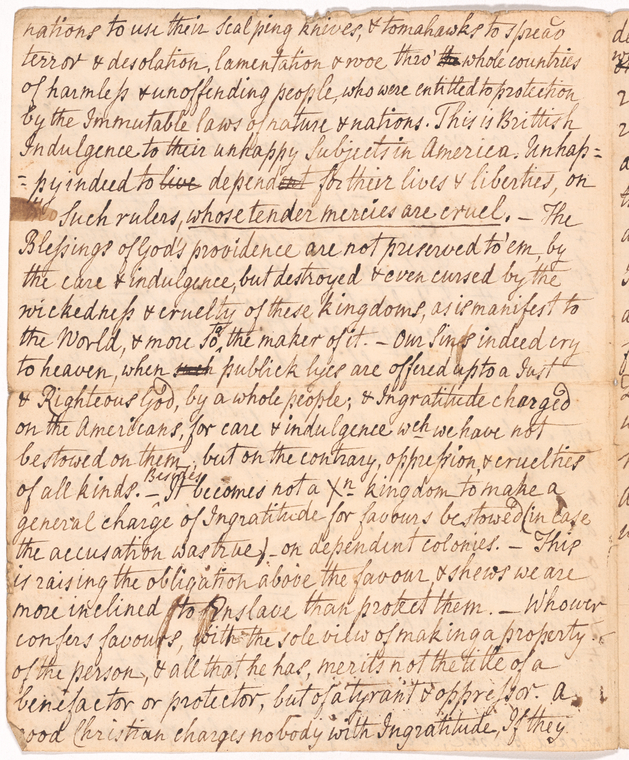 nations to use their scalping knives, & tomahawks to spread
terror & desolation, lamentation & woe thro' the whole countries
of harmless & unoffending people, who were entitled to protection
by the Immutable laws of nature & nations. This is Brittish
Indulgence to their unhappy Subjects in America. Unhap=
=py indeed to live dependent for their lives & liberties, on
Such rulers, whose tender mercies are cruel. – The
Blessings of God's providence are not preserved to 'em, by
the care & indulgence, but destroyed & even cursed by the
wickedness & cruelty of these kingdoms, as is manifest to
the World, & more So to the maker of it. – Our Sins indeed cry
to heaven, when such publick lyes are offered up to a Just
& Righteous God, by a whole people; & Ingratitude charged
on the Americans, for care & indulgence wch we have not
bestowed on them, but on the contrary, oppression & cruelties
of all kinds. – Besides It becomes not a Xn kingdom to make a
general charge of Ingratitude for favours bestowed (in case
the accusation was true) – on dependent colonies. – This
is raising the obligation above the favour, & shews we are
more inclined to Enslave than protect them. – Whoever
confers favours, with the sole view of making a property
of the person, & all that he has, merits not the title of a
benefactor or protector, but of a tyrant & oppressor. A
good Christian charges nobody with Ingratitude, If they